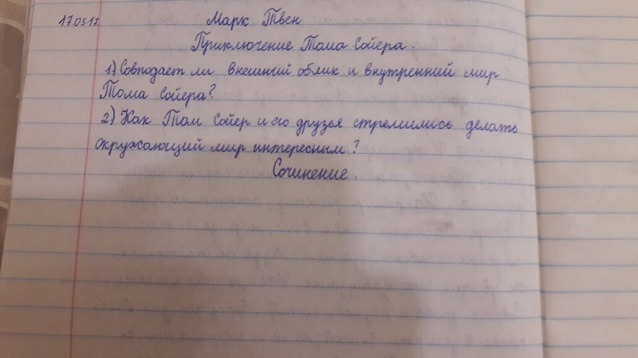 17.05.17 Марк Твен
Приключение Тома Сойера.
1) Совподает ли внешний облик и внутренний мир
Тома Сойера?
2) Как Том Сойер и его друзья стремились делать
окружающий мир интересным?
Сочинение.